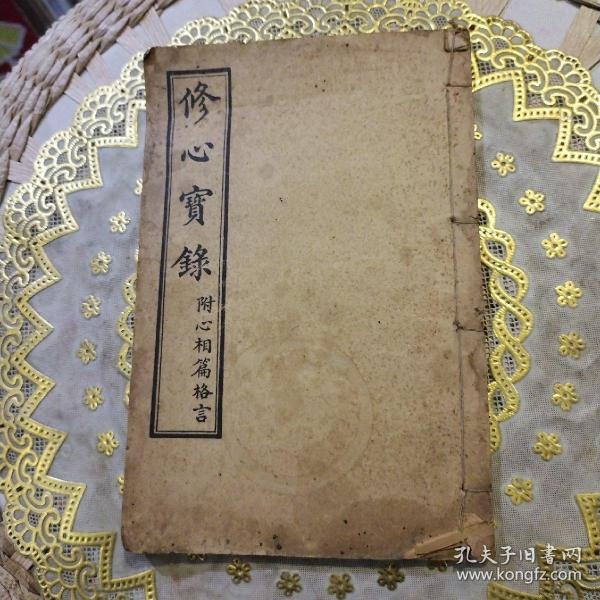 修心寶錄
附心相篇格言
孔夫子旧書网
www.kongfz.com